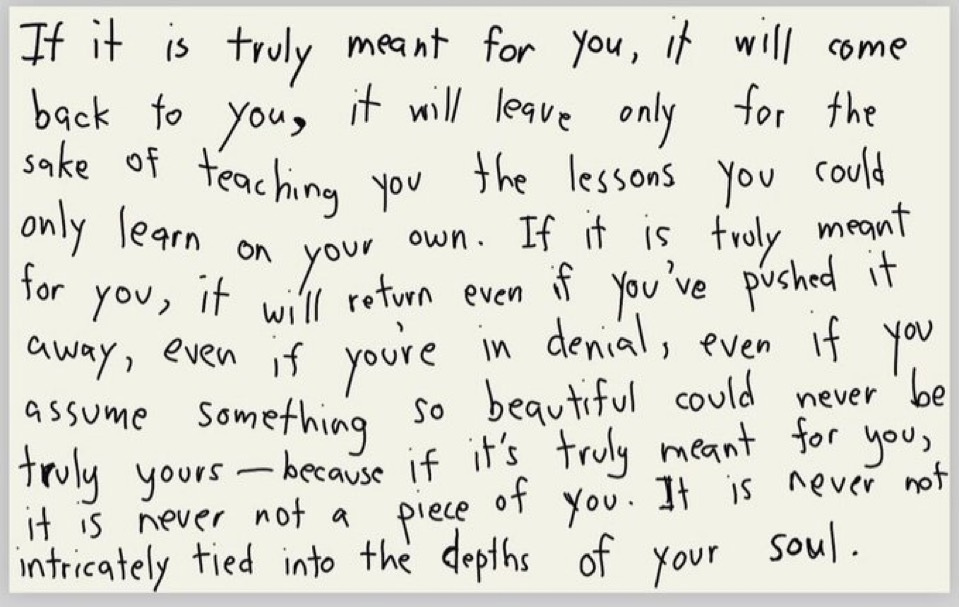 If it is truly meant for you, it will come
back to you, it will leave only for the
sake of teaching you the lessons you could
only learn on your own. If it is truly meant
for you, it will return even if you've pushed it
away, even if you're in denial, even if you
assume something so beautiful could never be
truly yours — because if it's truly meant for you,
it is never not a piece of you. It is never not
intricately tied into the depths of your soul.